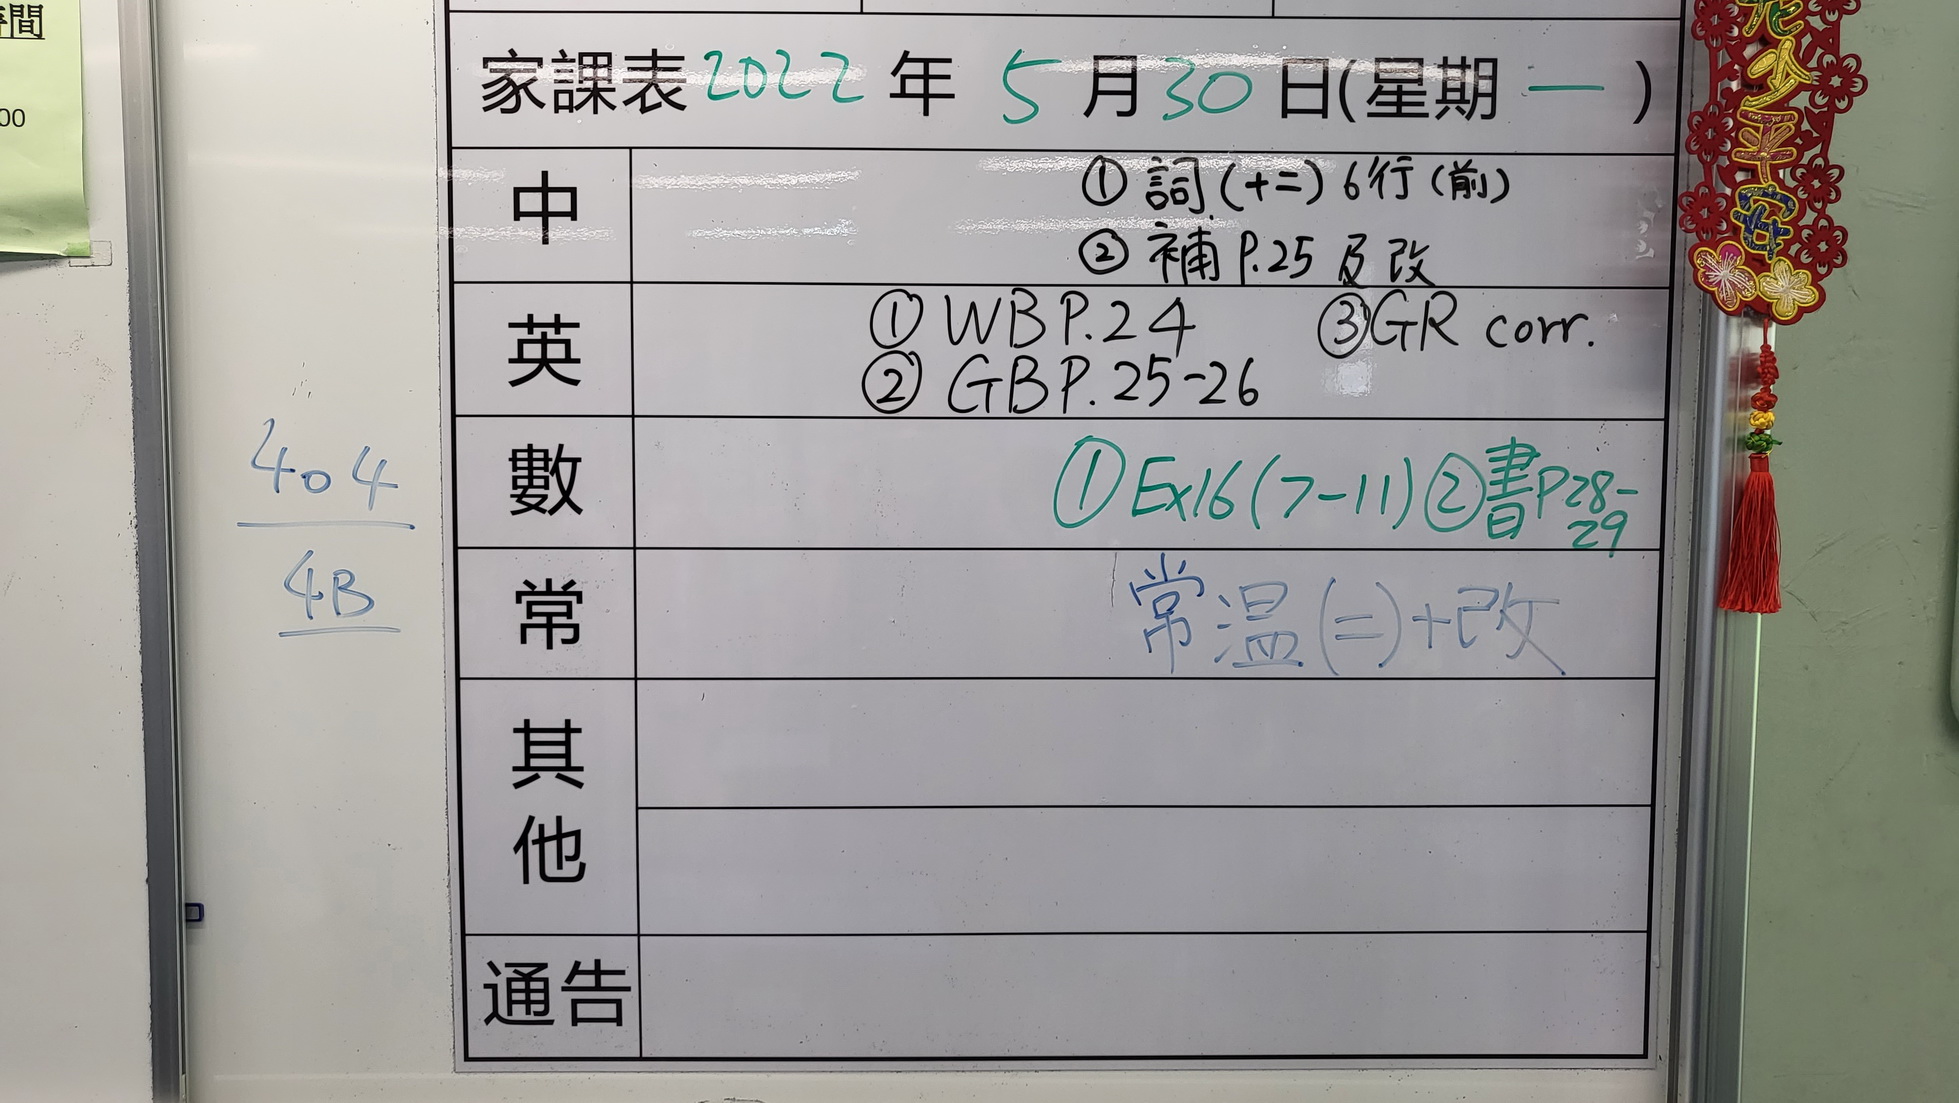 時間
00
家課表2022年5月30日(星期一)
中
① 詞(十二) 6行(前)
② 補 P.25 及改
英
① WB P.24 ③ GR corr.
② GB P.25-26
數
① Ex16(7-11) ② 書P28-
29
常
常温(二)+改
其
他
通告
404
4B
平安